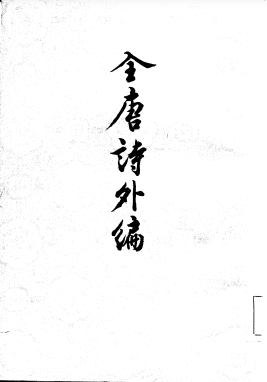 全唐詩外編